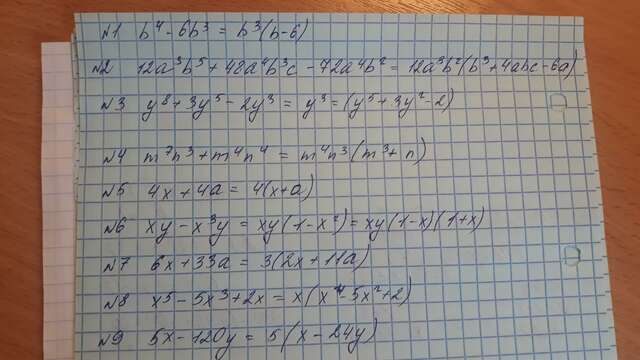 №1 b⁴ - 6b³ = b³(b-6)
№2 12a³b⁵ + 48a⁴b³c - 72a⁴b² = 12a³b²(b³+4abc-6a)
№3 y⁸ + 3y⁵ - 2y³ = y³ = (y⁵ + 3y² - 2)
№4 m⁷n³ + m⁴n⁴ = m⁴n³(m³ + n)
№5 4x + 4a = 4(x+a)
№6 xy - x³y = xy(1-x²) = xy(1-x)(1+x)
№7 6x + 33a = 3(2x + 11a)
№8 x⁵ - 5x³ + 2x = x(x⁴ - 5x² + 2)
№9 5x - 120y = 5(x - 24y)